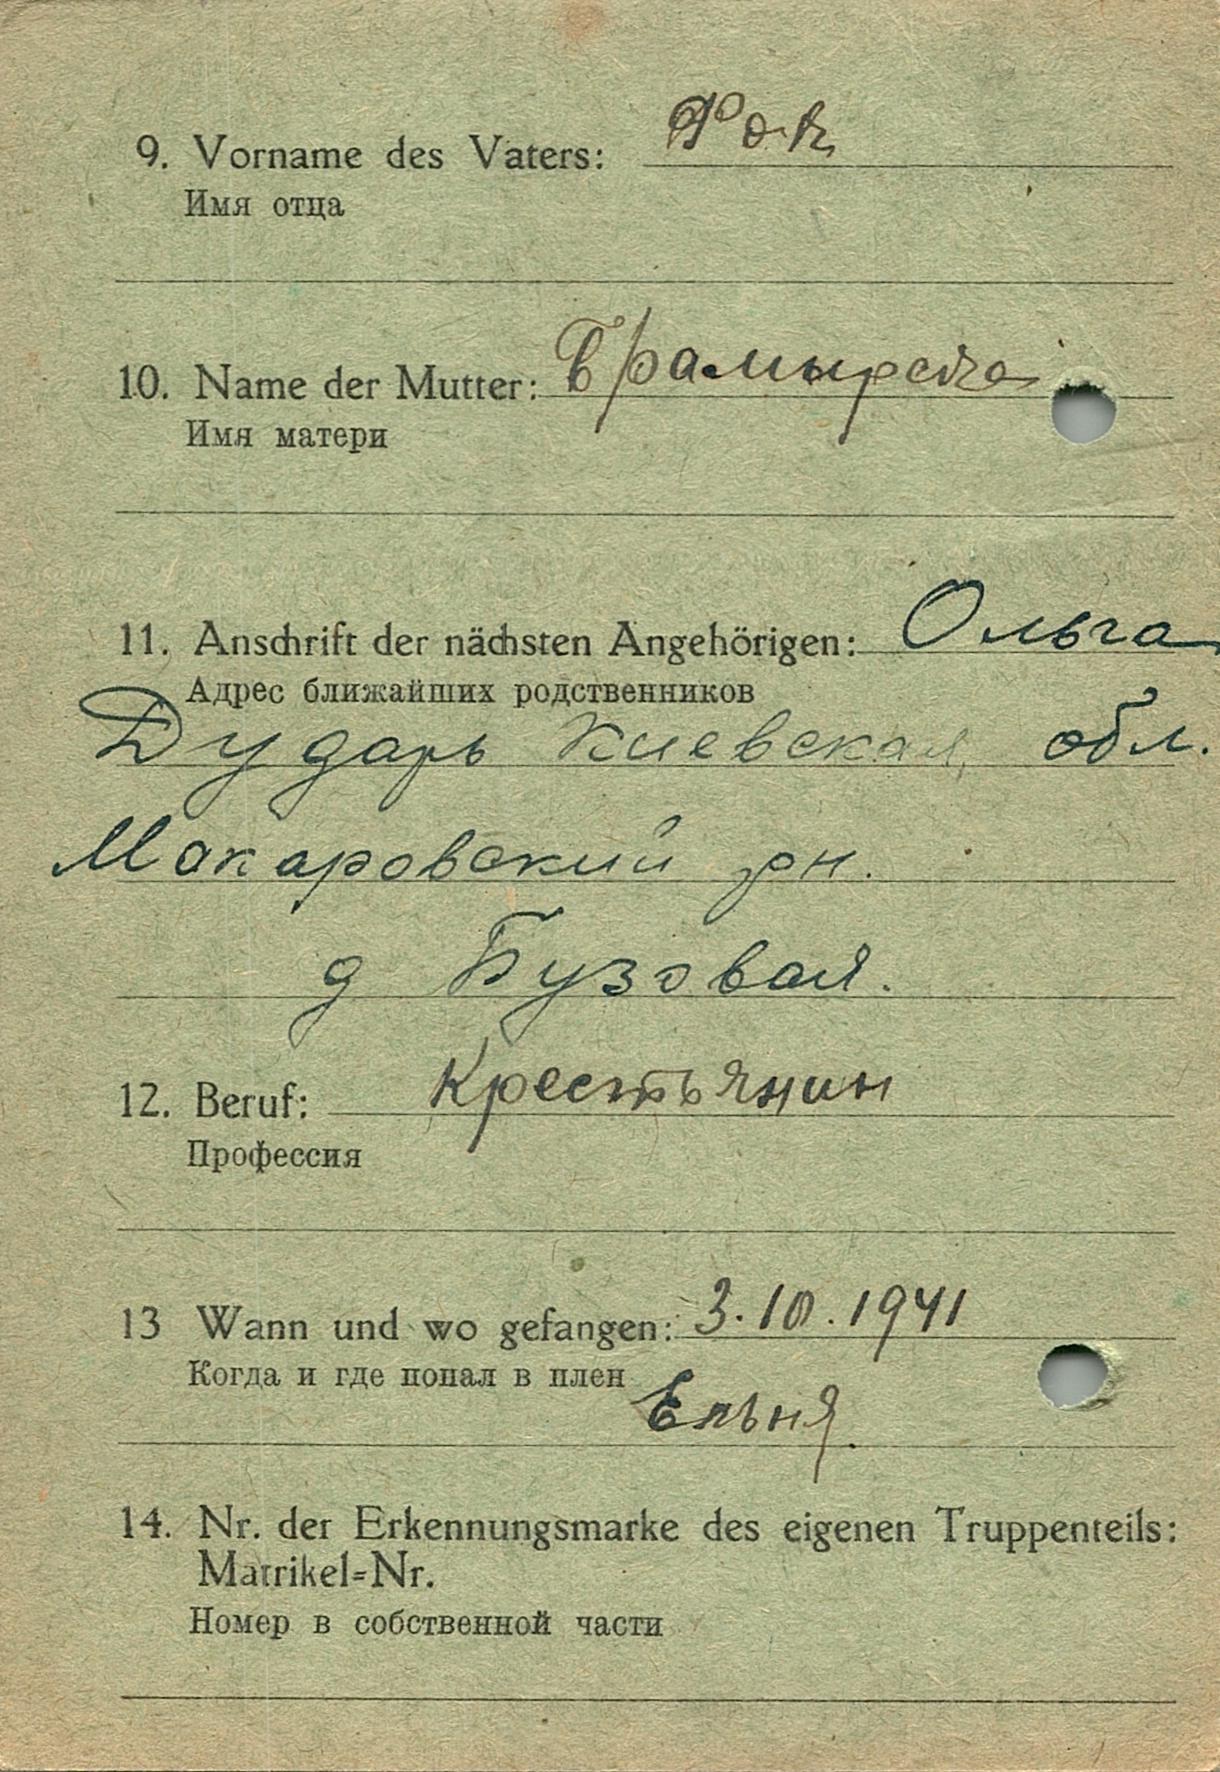 9. Vorname des Vaters:
Имя отца
10. Name der Mutter:
Имя матери
11. Anschrift der nächsten Angehörigen: Ольга
Адрес ближайших родственников
Дударь Киевская обл.
Макаровский рн.
д Бузовая.
12. Beruf: Крестьянин
Профессия
13 Wann und wo gefangen: 3.10.1941
Когда и где попал в плен Ельня
14. Nr. der Erkennungsmarke des eigenen Truppenteils:
Matrikel=Nr.
Номер в собственной части